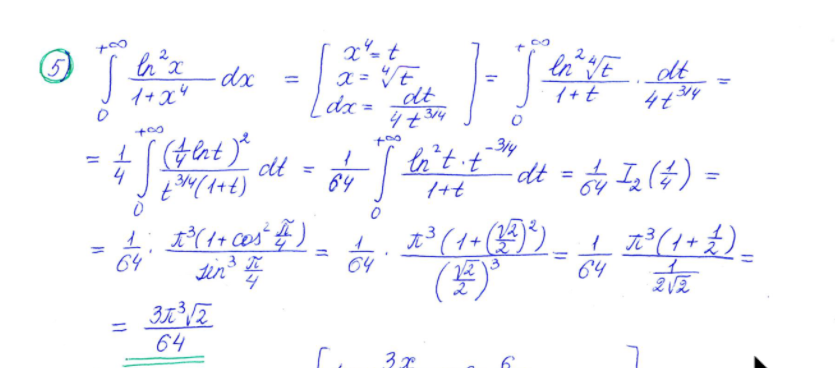 5) ∫₀^{+∞} ln²x / (1+x⁴) dx = [ x⁴ = t; x = ⁴√t; dx = dt / (4t^{3/4}) ] = ∫₀^{+∞} ln² ⁴√t / (1+t) · dt / (4t^{3/4}) =
= 1/4 ∫₀^{+∞} (1/4 ln t)² / (t^{3/4}(1+t)) dt = 1/64 ∫₀^{+∞} ln²t · t^{-3/4} / (1+t) dt = 1/64 I₂(1/4) =
= 1/64 · π³(1 + cos² π/4) / sin³ π/4 = 1/64 · π³(1 + (√2/2)²) / (√2/2)³ = 1/64 π³(1 + 1/2) / (1/(2√2)) =
= 3π³√2 / 64
[ 3x 6 ]